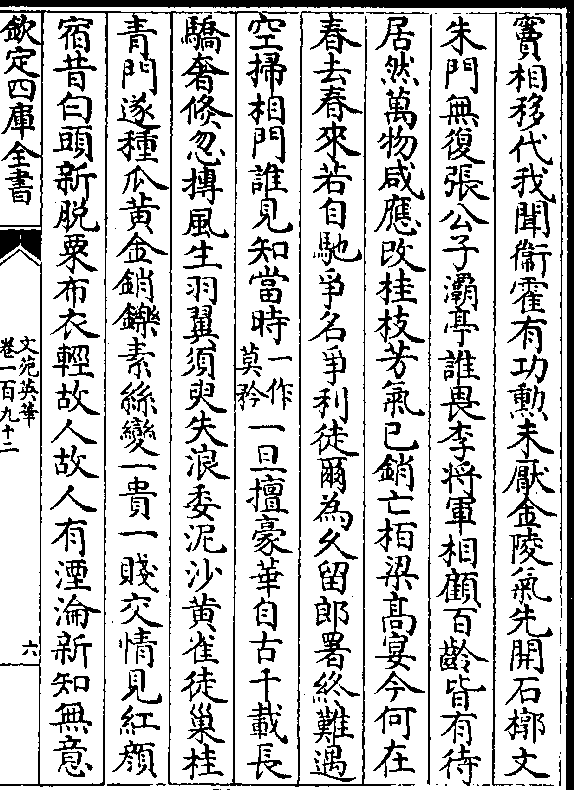 竇相移代我聞衞霍有功勲未厭金陵氣先開石槨文
朱門無復張公子灞亭誰畏李将軍相顧百齡皆有待
居然萬物咸應改桂枝芳氣已銷亡柏梁髙宴今何在
春去春來若自馳爭名爭利徒爾為久留郎署終難遇
空掃相門誰見知當時一作莫矜一旦擅豪華自古千載長
驕奢倐忽摶風生羽翼須臾失浪委泥沙黄雀徒巢桂
青門遂種瓜黄金銷鑠素絲變一貴一賤交情見紅顔
宿昔白頭新脱粟布衣輕故人故人有湮淪新知無意
欽定四庫全書
文苑英華
卷一百九十二
六